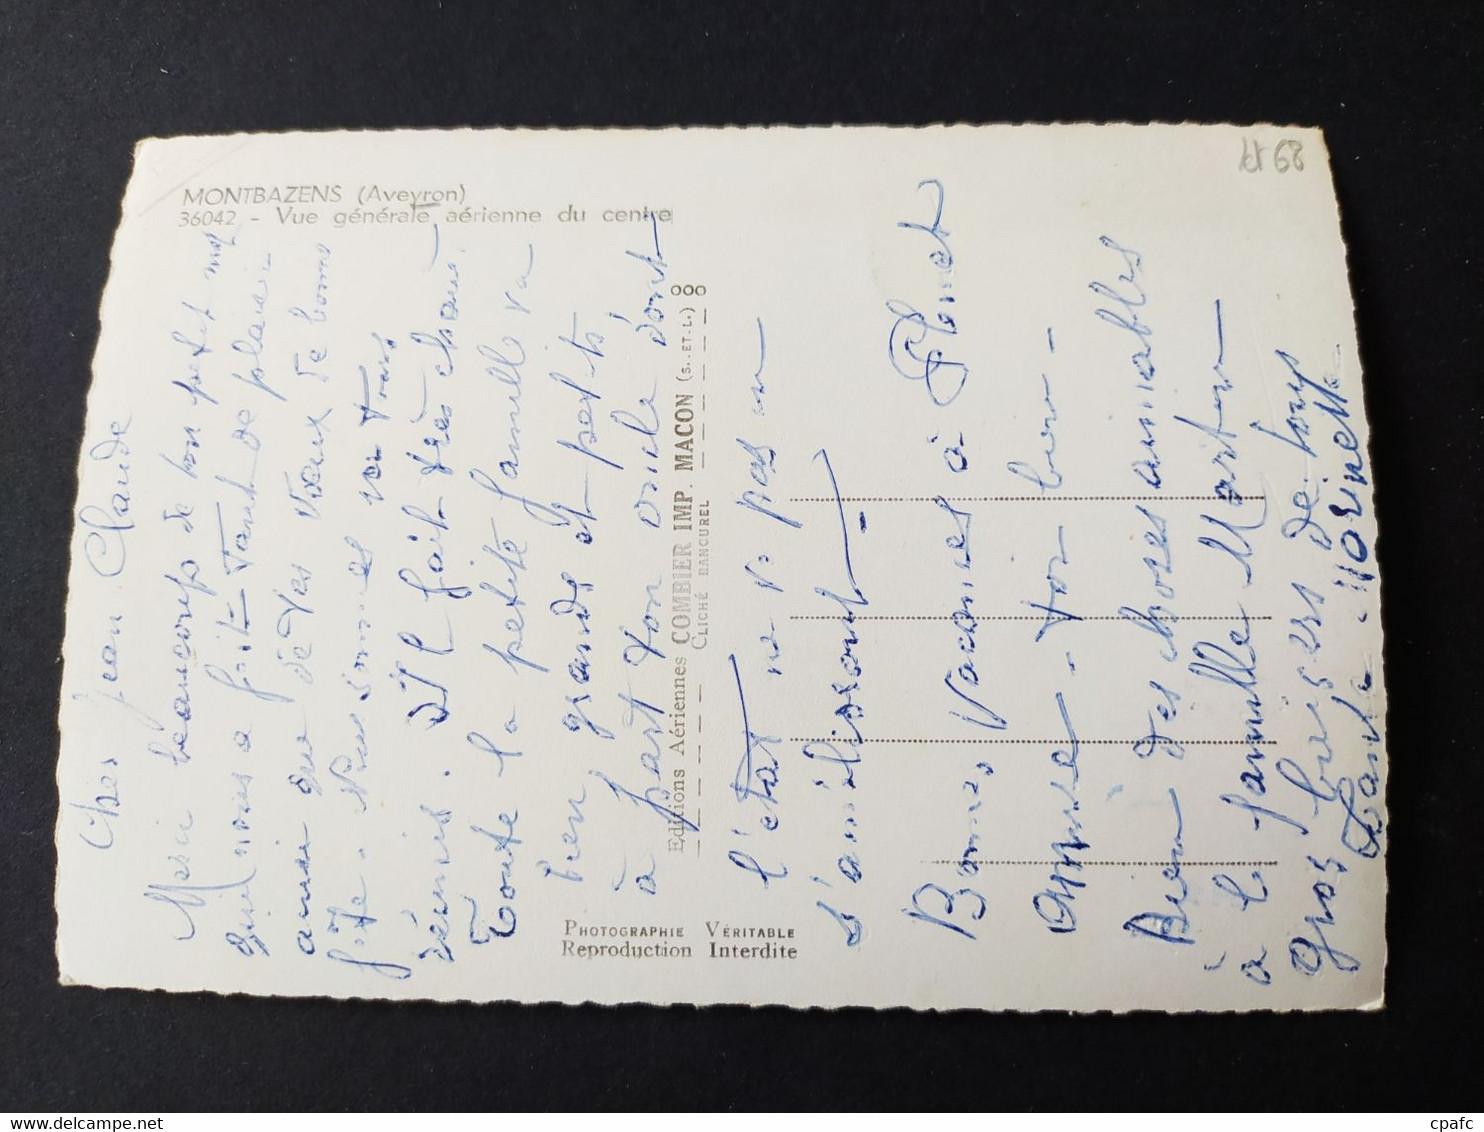 MONTBAZENS (Aveyron)
36042 - Vue générale aérienne du centre
Cher Jean Claude
Merci beaucoup de ton petit mot
qui nous a fait tant de plaisir
ainsi que de tes vœux de bonne
fête. Nous sommes tous
réunis. Il fait très chaud.
Toute la petite famille va
bien grands et petits
à part ton oncle dont
l'état ne va pas en
s'améliorant.
Bonnes vacances à
Bien des choses aimables
à la famille Martin
gros baisers de tous
Editions Aériennes COMBIER IMP. MACON (S.-ET-L.) ooo
CLICHÉ RANCUREL
PHOTOGRAPHIE VÉRITABLE
Reproduction Interdite
cpafc